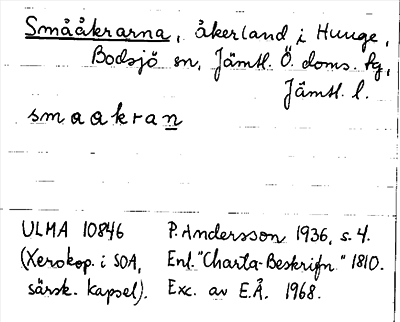 Småååkrarna, åkerland i Hunge,
Bodsjö sn, Jämtl. Ö. doms. hg,
Jämtl. l.
smaakran
ULMA 10846 P. Andersson 1936, s. 4.
(Xerokop. i SOA, Enl. "Charta-Beskrifn." 1810.
särsk. kapsel). Exc. av E.Å. 1968.